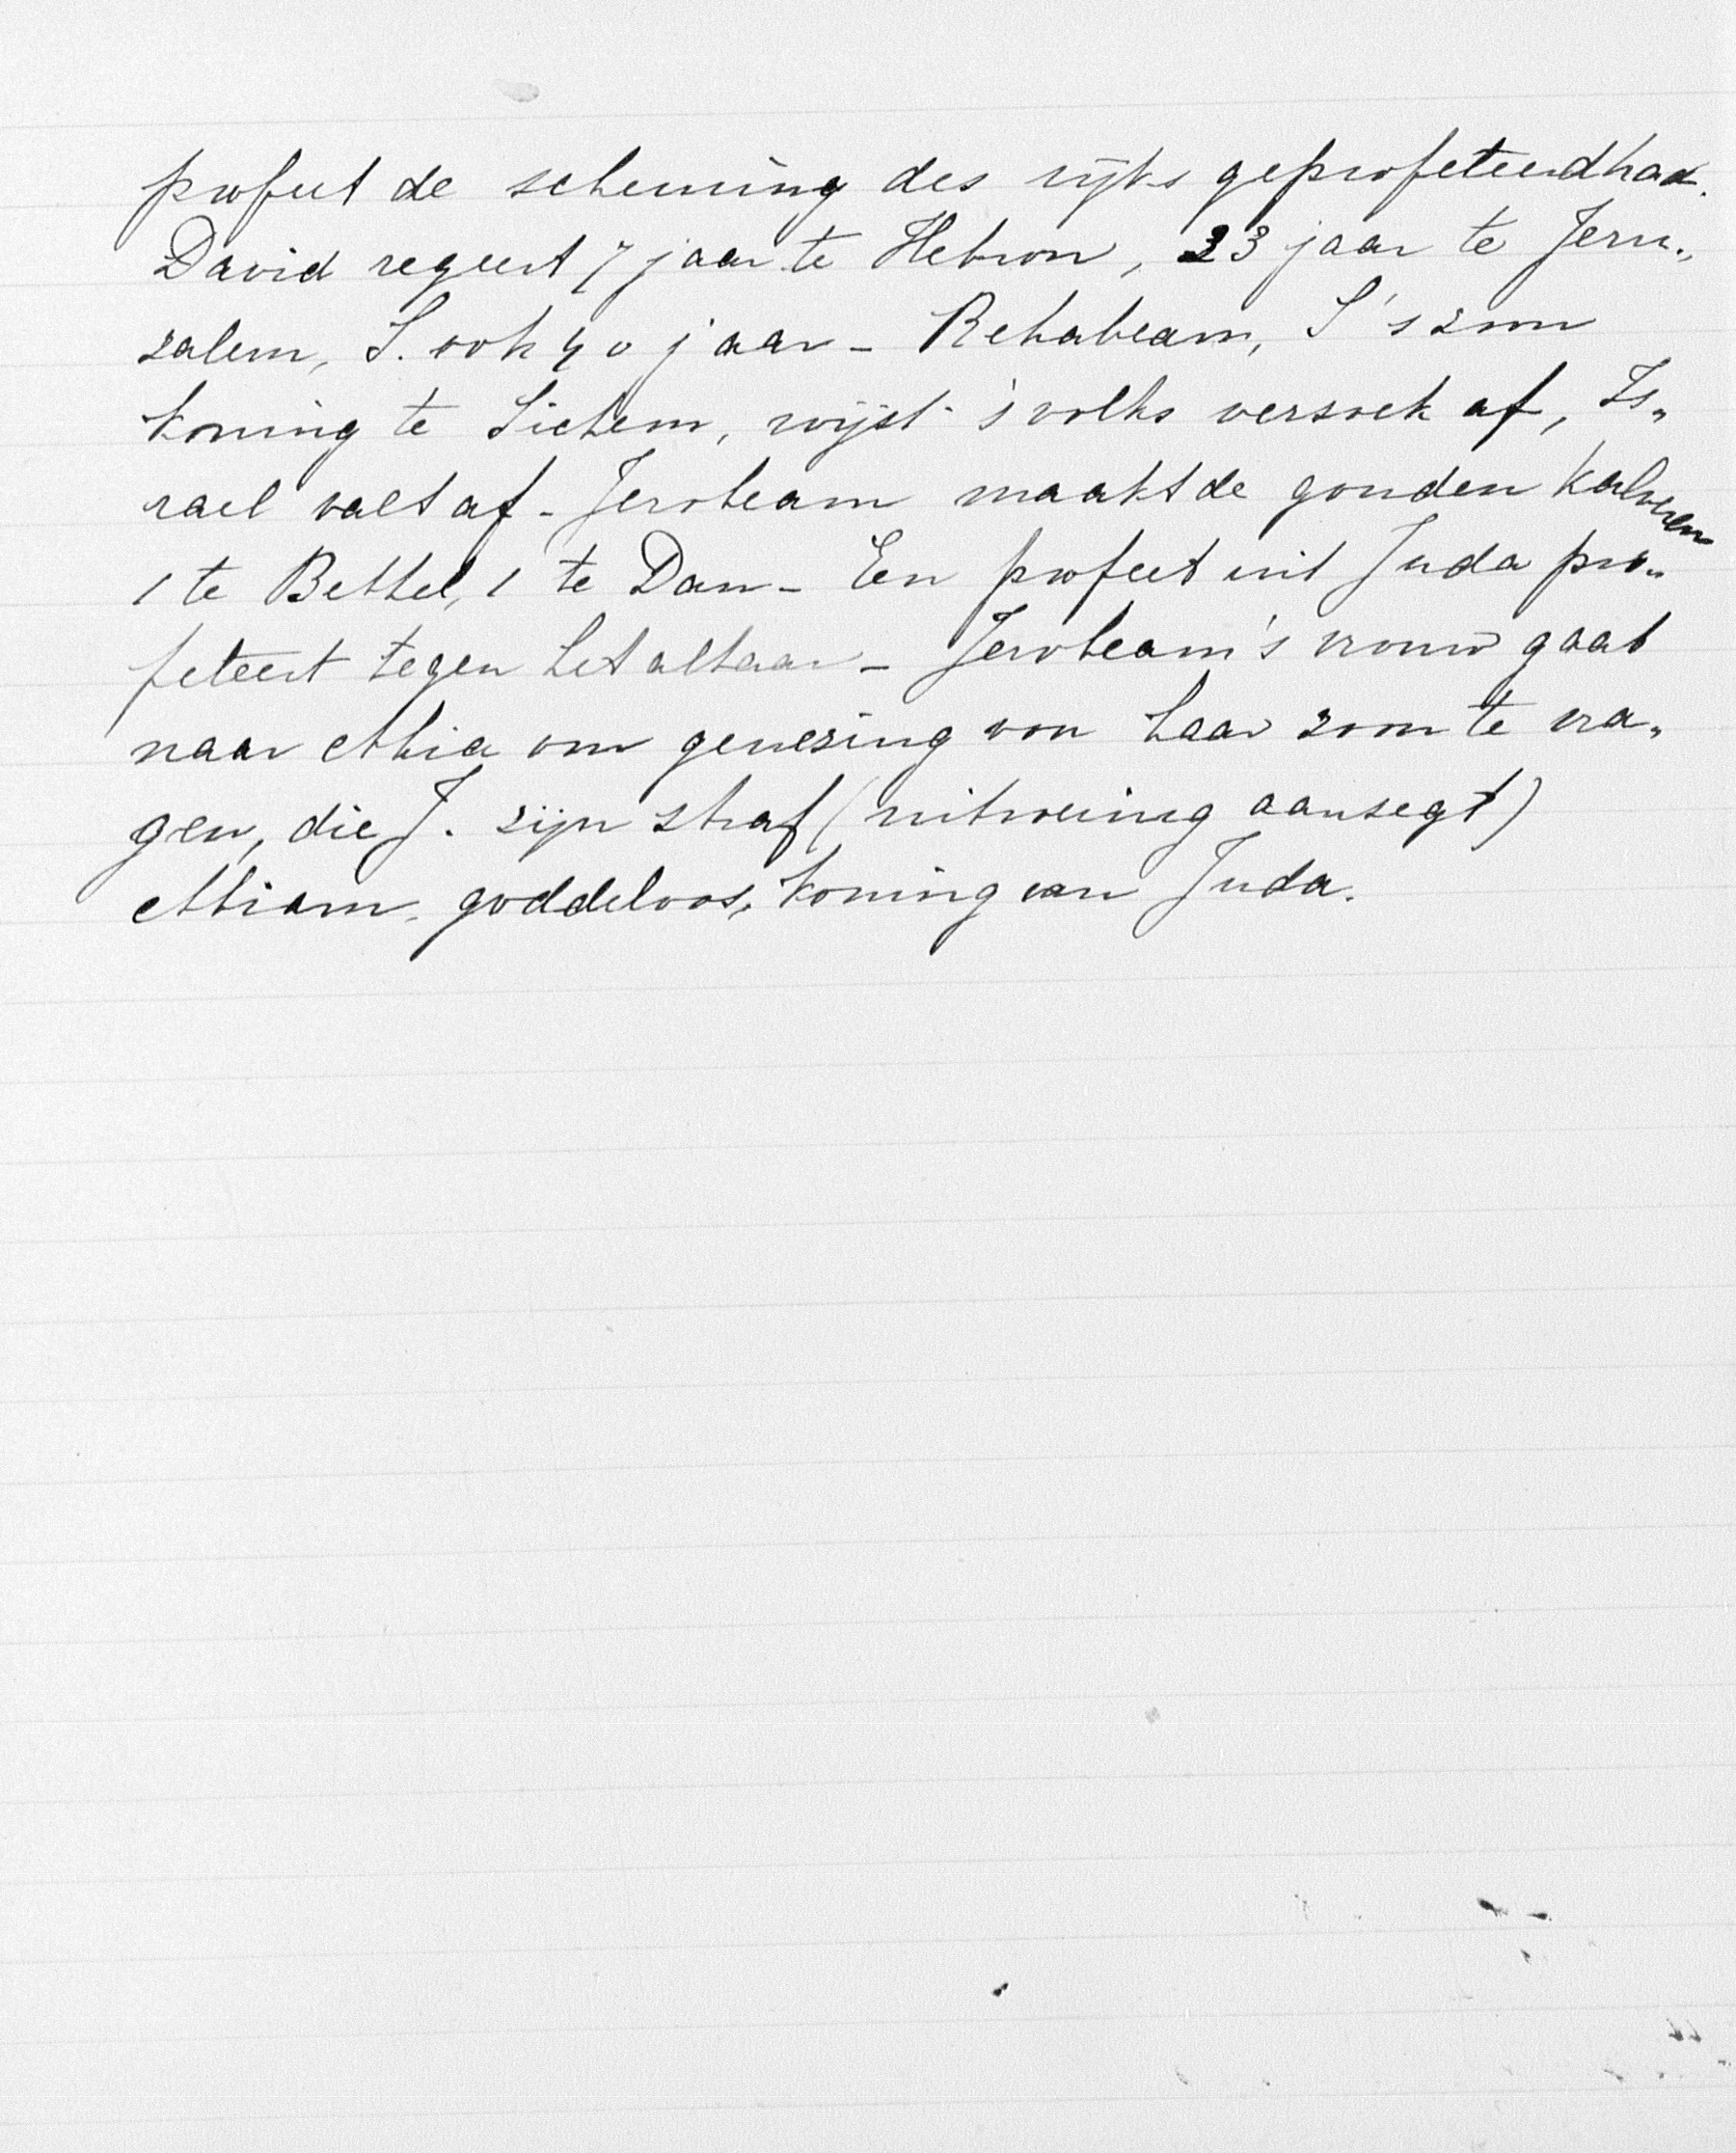 profeet de scheuring des rijks geprofeteerd had.
David regeert 7 jaar te Hebron, 33 jaar te Jeru„
zalem, S. ook 40 jaar - Rehabeam, S's zoon
koning te Sichem, wijst 's volks verzoek af, Is„
rael valt af - Jerobeam maakt de gouden kalveren
1 te Bethel, 1 te Dan - Een profeet uit Juda pro„
feteert tegen het altaar - Jerobeam's vrouw gaat
naar Ahia om genezing von haar zoon te vra„
gen, die J. zijn straf (uitroeiing aanzegt)
Abiam, goddeloos, koning van Juda.